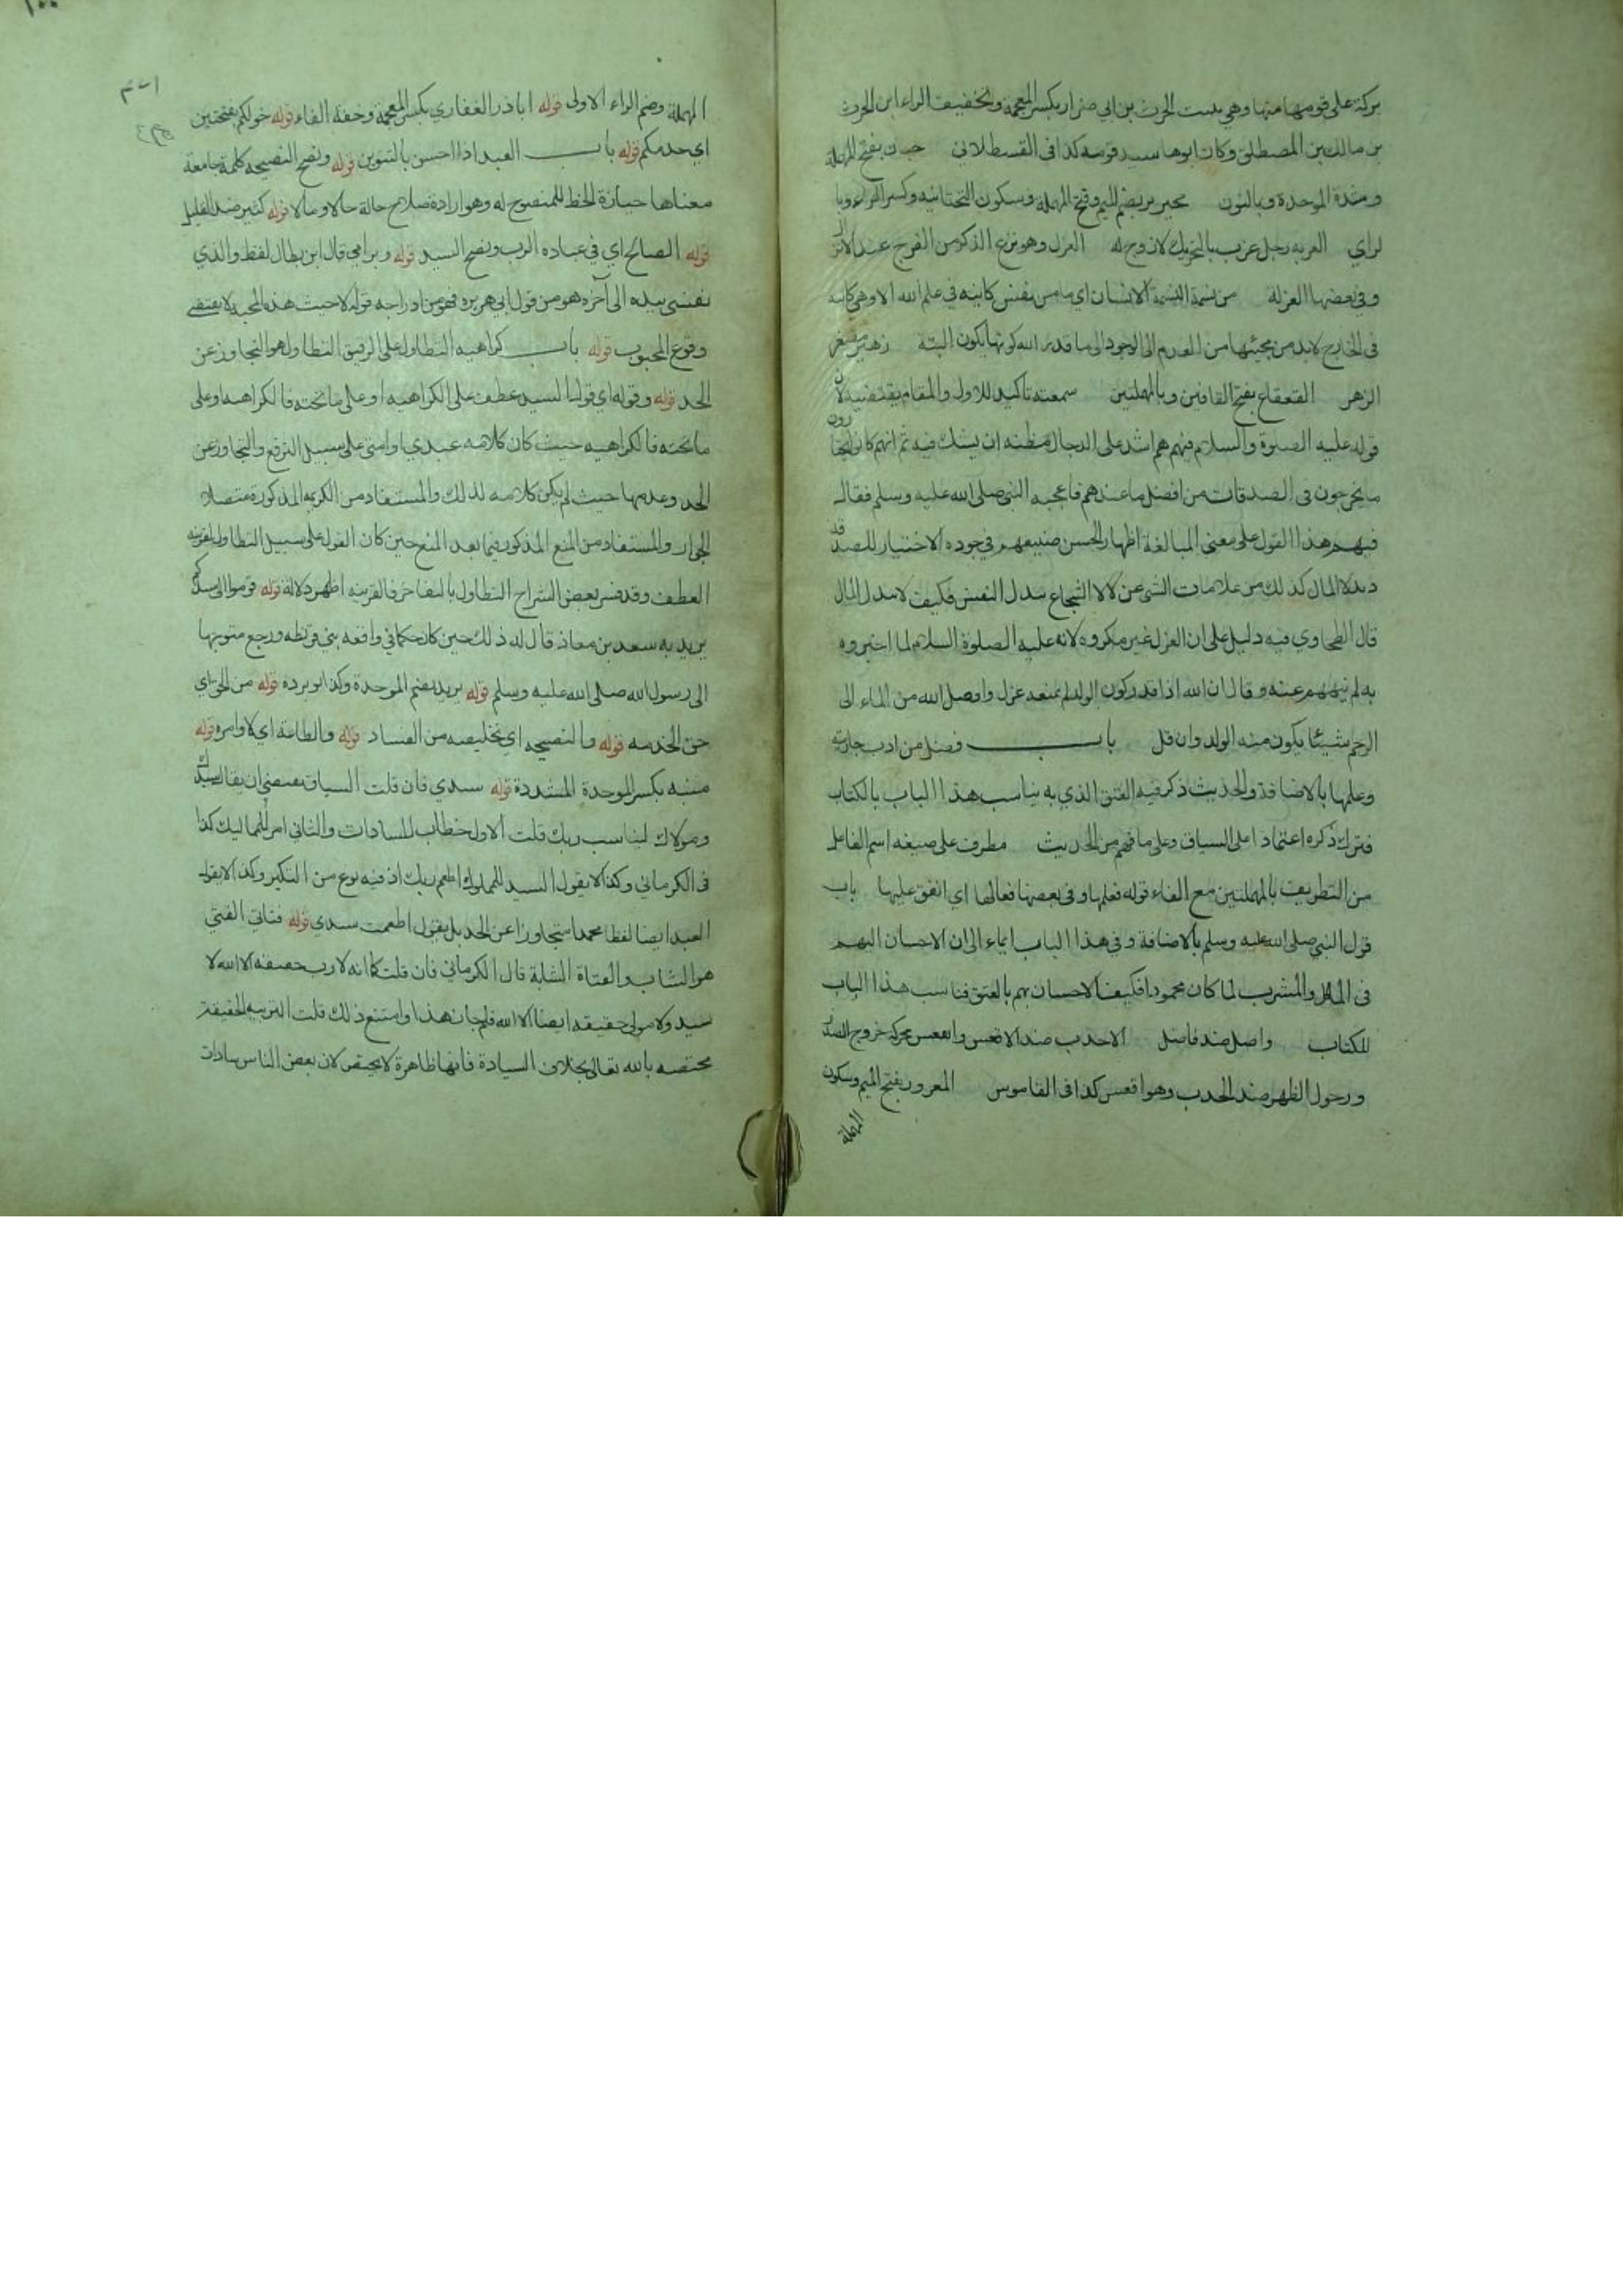 بركة على قومها منها وهي بنت الحرث بن ابي ضرار بكسر المعجمة وتخفيف الراء ابن الحرث
بن مالك بن المصطلق وكان ابوها سيد قومه كذا فى القسطلاني حبان بفتح المهملة
وشدة الموحدة وبالنون محيريز بضم الميم وفتح المهملة وسكون التحتانيه وكسر الراء وبا
لزاي العزبه رجل عزب بالتحريك لا زوج له العزل وهو نزع الذكر من الفرج عند الانزال
وفي بعضها العزلة من نسمة النسمة الانسان اي ما من نفس كاينه في علم الله الا وهي كاينه
فى الخارج لابد من مجيئها من العدم الى الوجود الى ما قدر الله كونها يكون البتة زهير مصغر
الزهر القعقاع بفتح القافين وبالمهملتين سمعته تاكيد للاول والمقام يقتضيه لان
قوله عليه الصلوة والسلام فيهم هم اشد على الدجال مظنه ان يشك فيه ثم انهم كانوا يختارون
ما يخرجون فى الصدقات من افضل ما عندهم فاعجبه النبي صلى الله عليه وسلم فقال
فيهم هذا القول على معنى المبالغة اظهار الحسن صنيعهم في جوده الاختيار للصدقه
كذلك من علامات الشجاع بذل النفس فكيف لا بذل المال
قال الطحاوي فيه دليل على ان العزل غير مكروه لانه عليه الصلوة السلام لما اخبروه
به لم ينههم عنه وقال ان الله اذا قدر كون الولد لم يمنعه عزل واوصل الله من الماء الى
الرحم شيئا يكون منه الولد وان قل باب فضل من ادب جاريته
وعلمها بالاضافة والحديث ذكر فيه العتق الذي به يناسب هذا الباب بالكتاب
فترك ذكره اعتمادا على السياق وعلى ما فهم من الحديث مطرف على صيغه اسم الفاعل
من التطريف بالمهملتين مع الفاء قوله فعلمها وفى بعضها فعالها اي انفق عليها باب
قول النبي صلى الله عليه وسلم بالاضافة وفي هذا الباب ايماء الى ان الاحسان اليهم
فى الماكل والمشرب لما كان محمودا فكيف الاحسان بهم بالعتق فناسب هذا الباب
للكتاب واصل ضد فاصل الاحدب ضد الاقعس والقعس محركة خروج الصدر
ودخول الظهر ضد الحدب وهو اقعس كذا فى القاموس المعرور بفتح الميم وسكون
المهملة
المهملة وضم الراء الاولى قوله اباذر الغفاري بكسر المعجمة وخفة الفاء قوله خولكم بفتحتين
اي خدمكم قوله باب العبد اذا احسن بالتنوين قوله ونصح النصيحه كلمة جامعة
معناها حيازة الحظ للمنصوح له وهو ارادة صلاح حالة حالا ومالا قوله كثير ضد القليل
قوله الصالح اي في عباده الرب ونصح السيد قوله وبر امي قال ابن بطال لفظ والذي
نفسى بيده الى آخره هو من قول ابي هريره فهو من ادراجه قوله لاحببت هذه المحبه لا يقتضى
وقوع المحبوب قوله باب كراهيه التطاول على الرقيق التطاول هو التجاوز عن
الحد قوله وقوله اي قول السيد عطف على الكراهيه او على ما تحته فالكراهيه وعلى
ما تحته فالكراهيه حيث كان كلامه عبدي او امتي على سبيل الترفع والتجاوز عن
الحد وعدمها حيث لم يكن كلامه لذلك والمستفاد من الكريمه المذكورة متصلا
الجواز والمستفاد من المنع المذكور فيما بعد المنع حين كان القول على سبيل التطاول لقرينه
العطف وقد فسر بعض الشراح التطاول بالتفاخر فالقرينه اظهر دلالة قوله قوموا الى سيدكم
يريد به سعد بن معاذ قال له ذلك حين كان حكما في واقعه بني قريظه ورجع متوجها
الى رسول الله صلى الله عليه وسلم قوله بريد بضم الموحدة وكذا ابو برده قوله من الحق اي
حق الخدمه قوله والنصيحه اي تخليصه من الفساد قوله والطاعة اي لاوامره قوله
منبه بكسر الموحدة المشددة قوله سيدي فان قلت السياق يقتضى ان يقال سيدك
ومولاك ليناسب ربك قلت الاول خطاب للسادات والثاني امر للمماليك كذا
فى الكرماني وكذا لا يقول السيد للمملوك اطعم ربك اذ فيه نوع من التكبر وكذا لا يقول
العبد ايضا لفظا متجاوزا عن الحد بل يقول اطعمت سيدي قوله فتاتي الفتى
هو الشاب والفتاة الشابة قال الكرماني فان قلت كما انه لا رب حقيقه الا الله لا
سيد ولا مولى حقيقه ايضا الا الله فلم جاز هذا وامتنع ذلك قلت التربيه الحقيقة
مختصه بالله تعالى بخلاف السيادة فانها ظاهرة لا يختص لان بعض الناس سادات